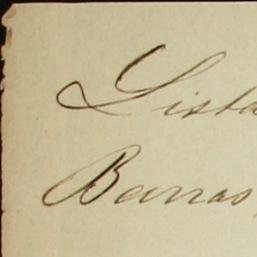 Lista
Barras